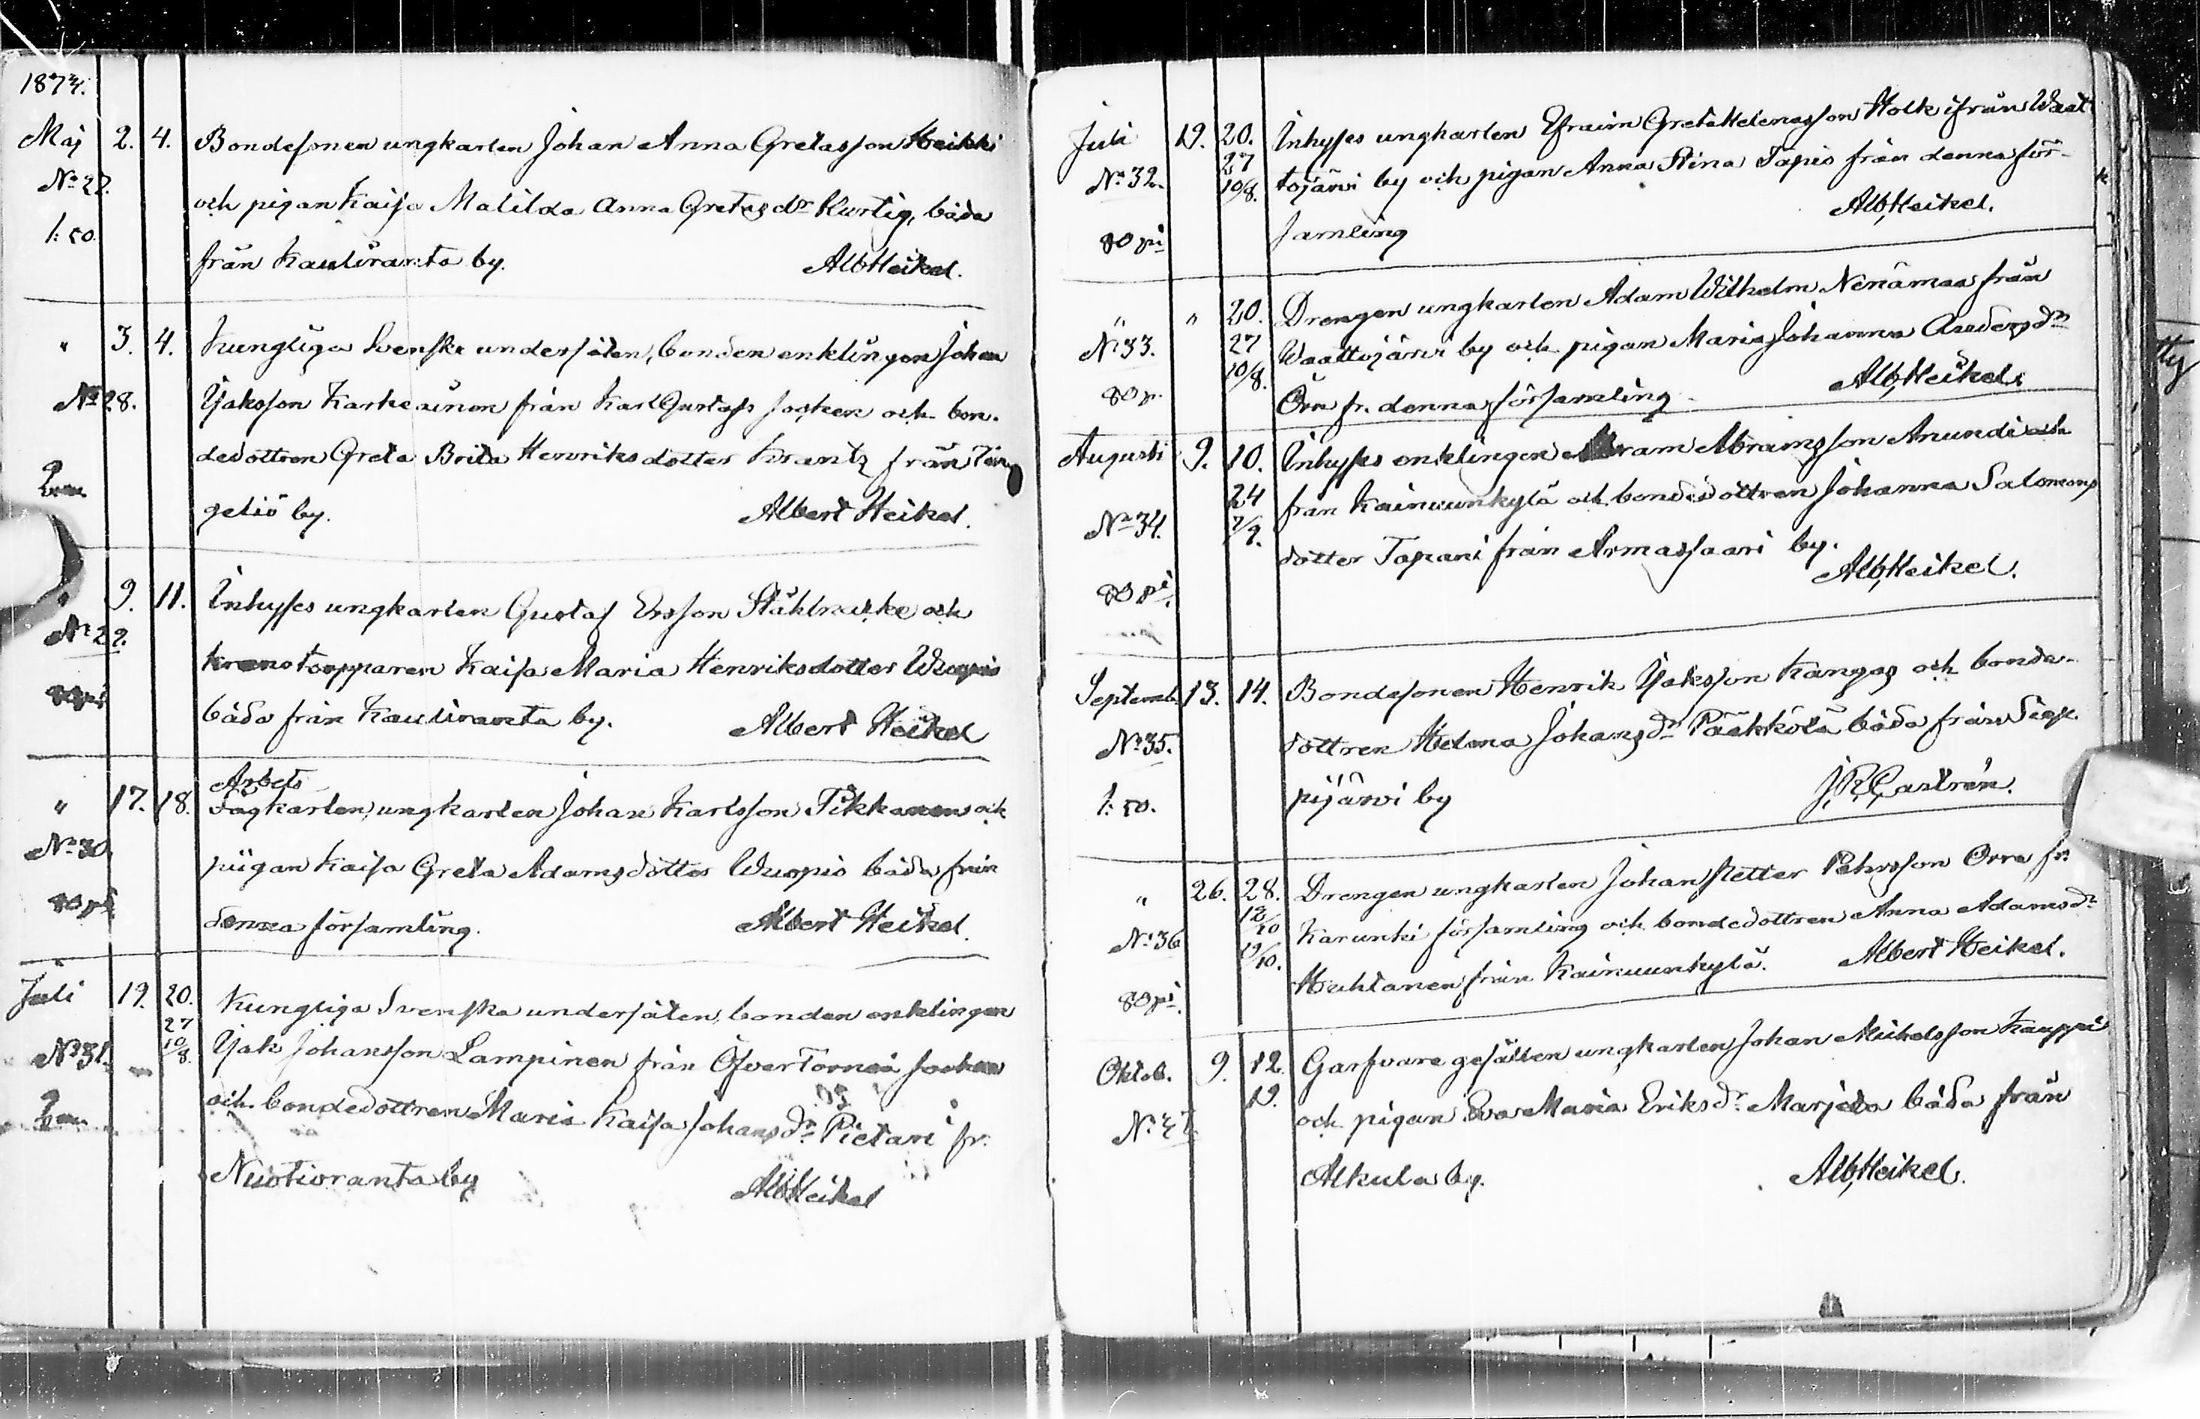 1874.
Maj 2. 4. Bondesonen ungkarlen Johan Anna Gretasson Heikki
No 27. och pigan Kaisa Matilda Anna Gretas dr Kurtig, båda
1:50. från Kauliranta by. Alb Heikel.
" 3. 4. Kungliga Svenska undersåten, bonden enklingen Johan
No 28. Isaksson Karkeainen från Karl Gustafs socken och bon-
dedottren Greta Brita Henriksdotter Krantz från Ten
geliö by. Albert Heikel.
" 9. 11. Inhyses ungkarlen Gustaf Ersson Ståhlnacke och
No 29. kronotorpparen Kaisa Maria Henriksdotter Wuopio
80 pi båda från Kauliranta by. Albert Heikel
Arbets
" 17. 18. dagkarlen, ungkarlen Johan Karlsson Tikkanen och
No 30. piigan Kaisa Greta Adamsdotter Wuopio båda från
80 pi denna församling. Albert Heikel.
Juli 19. 20. Kungliga Svenska undersåten, bonden enklingen
27
No 31. 10/8. Isak Johansson Lampinen från Öfver Torneå socken
och bondedottren Maria Kaisa Johans dr Pietari fr.
Nuotioranta by Alb Heikel
Juli 19. 20. Inhyses ungkarlen Efraim Greta Helenasson Holk ifrån Waat
27
No 32. 10/8. tojärvi by och pigan Anna Stina Tapio från denna för-
Alb, Heikel.
80 pi samling
" " 20. Drengen ungkarlen Adam Wilhelm Nenämaa från
No 33. 27 Waattojärvi by och pigan Maria Johanna Anders dr
80 p. 10/8. Örn fr. denna församling. Alb, Heikel.
Augusti 9. 10. Inhyses enklingen Abram Abramsson Anundi och
24 från Kainuunkylä och bondedottren Johanna Salomons
No 34. 7/9. dotter Tapani från Armassaari by.
80 pi. Alb, Heikel.
Septemb. 13. 14. Bondesonen Henrik Isaksson Kangas och bonde-
No 35. dottren Helena Johans dr Pääkkölä båda från Siep
1:50. pijärvi by J, R, Castrén.
" 26. 28. Drengen ungkarlen Johan Petter Pehrsson Orra fr.
No 36 12/10 Karunki församling och bondedottren Anna Adams dr
19/10. Huhtanen från Kainuunkylä. Albert Heikel.
80 pi.
Oktob. 9. 12. Garfvare gesällen ungkarlen Johan Michelsson Kauppi
No 37. 19. och pigan Eva Maria Eriks dr Marjeta båda från
Alkula by. Alb, Heikel.